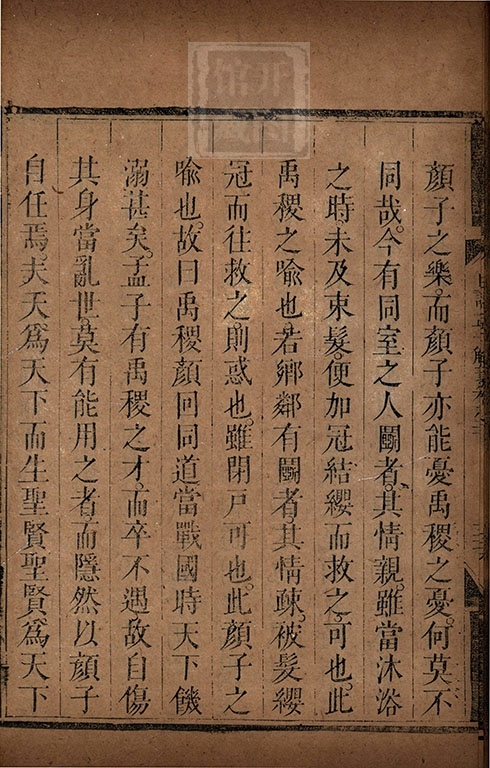 顏子之樂而顏子亦能憂禹稷之憂何莫不
同哉今有同室之人鬭者其情親雖當沐浴
之時未及束髮便加冠結纓而救之可也此
禹稷之喻也若鄉鄰有鬭者其情疎被髮纓
冠而往救之則惑也雖閉戸可也此顏子之
喻也故曰禹稷顏回同道當戰國時天下饑
溺甚矣孟子有禹稷之才而卒不遇故自傷
其身當亂世莫有能用之者而隱然以顏子
自任焉夫天爲天下而生聖賢聖賢爲天下